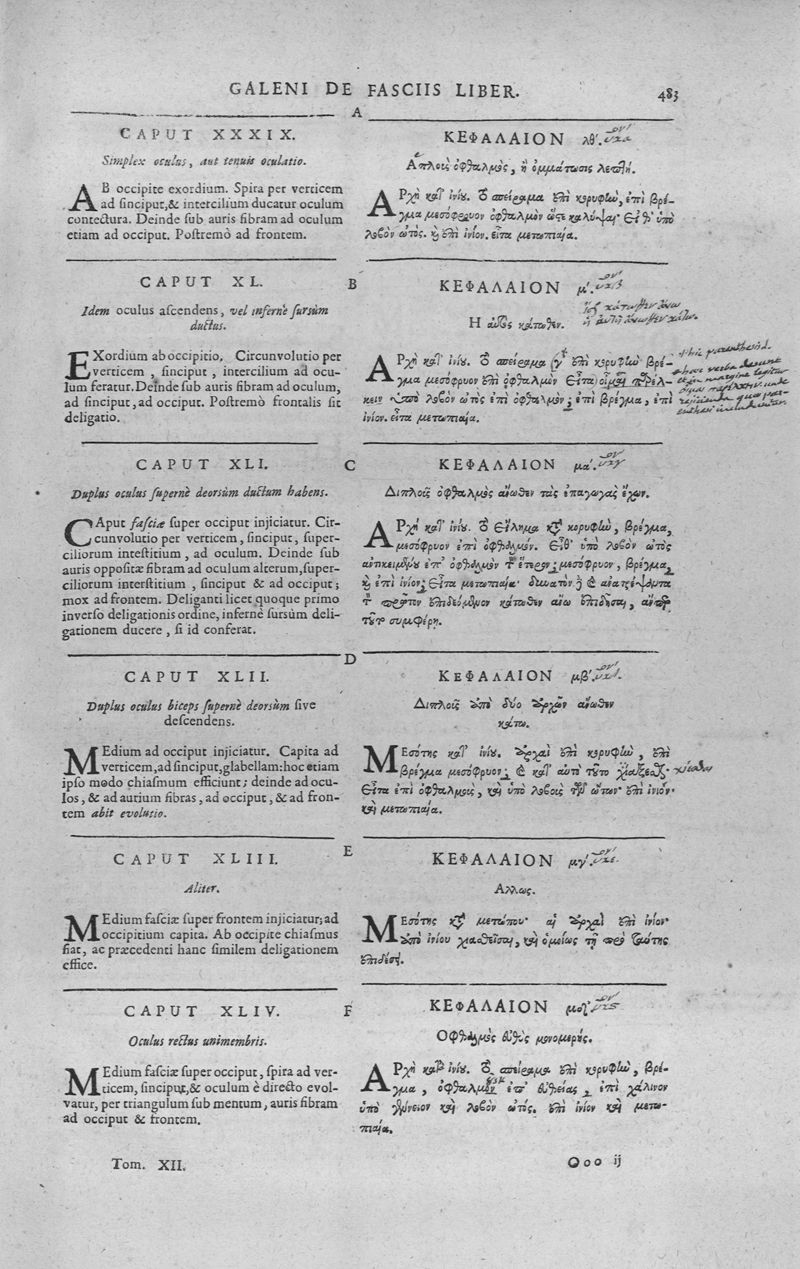 GALENI DE FASCIIS LIBER.
483
A
CAPUT XXXIX.
Simplex oculus, aut tenuis oculatio.
AB occipite exordium. Spira per verticem
ad sinciput,& intercilium ducatur oculum
contectura. Deinde sub auris fibram ad oculum
etiam ad occiput. Postremò ad frontem.
ΚΕΦΑΛΑΙΟΝ λθ'.
Απλοῦς ὀφθαλμὸς, ἢ ὀμμάτωσις λεπτή.
ΑΡχὴ κατ' ἰνίου. τὸ ἀπείραμα ἐπὶ κορυφὼ, ἐπὶ βρέ-
γμα μεσόφρυον ὀφθαλμὸν ὥστε καλύψαι· Εἶθ' ὑπὸ
λοβὸν ὠτός. καὶ ἐπὶ ἰνίον. εἶτα μετωπιαία.
B
CAPUT XL.
Idem oculus ascendens, vel infernè sursùm
ductus.
EXordium ab occipitio. Circumvolutio per
verticem, sinciput, intercilium ad ocu-
lum feratur. Deinde sub auris fibram ad oculum,
ad sinciput, ad occiput. Postremò frontalis sit
deligatio.
ΚΕΦΑΛΑΙΟΝ μ'.
Η αὐτὸς κάτωθεν.
ΑΡχὴ κατ' ἰνίου. τὸ ἀπείραμα ἐπὶ κορυφὼ βρέ-
γμα μεσόφρυον ἐπὶ ὀφθαλμὸν Εἶτα
λοβὸν ὠτὸς ἐπὶ ὀφθαλμὸν; ἐπὶ βρέγμα, ἐπὶ
ἰνίον. εἶτα μετωπιαία.
C
CAPUT XLI.
Duplus oculus supernè deorsùm ductum habens.
CAput fasciæ super occiput injiciatur. Cir-
cumvolutio per verticem, sinciput, super-
ciliorum intestitium, ad oculum. Deinde sub
auris oppositæ fibram ad oculum alterum,super-
ciliorum interstitium, sinciput & ad occiput;
mox ad frontem. Deliganti licet quoque primo
inverso deligationis ordine, infernè sursùm deli-
gationem ducere, si id conferat.
ΚΕΦΑΛΑΙΟΝ μα'.
Διπλοῦς ὀφθαλμὸς ἄνωθεν τὰς ἐπαγωγὰς ἔχων.
ΑΡχὴ κατ' ἰνίου. τὸ εἴλημα κατὰ κορυφὼ, βρέγμα,
μεσόφρυον ἐπὶ ὀφθαλμόν. Εἶθ' ὑπὸ λοβὸν ὠτὸς
ἀντικειμένου ἐπ' ὀφθαλμὸν τὸν ἕτερον; μεσόφρυον, βρέγμα,
καὶ ἐπὶ ἰνίον; Εἶτα μετωπιαία·
ἐπιδεόμενον κάτωθεν ἄνω
συμφέρῃ.
D
CAPUT XLII.
Duplus oculus biceps supernè deorsùm sive
descendens.
MEdium ad occiput injiciatur. Capita ad
verticem,ad sinciput,glabellam:hoc etiam
ipso modo chiasmum efficiunt; deinde ad ocu-
los, & ad aurium fibras, ad occiput, & ad fron-
tem abit evolutio.
ΚΕΦΑΛΑΙΟΝ μβ'.
Διπλοῦς ἀπὸ δύο ἀρχῶν ἄνωθεν
κάτω.
ΜΕσότης κατ' ἰνίου. ἀρχαὶ ἐπὶ κορυφὼ, ἐπὶ
βρέγμα μεσόφρυον; καὶ κατ' αὐτὸ τοῦτο
Εἶτα ἐπὶ ὀφθαλμοὺς, καὶ ὑπὸ λοβοὺς τῶν ὤτων· ἐπὶ ἰνίον·
καὶ μετωπιαία.
E
CAPUT XLIII.
Aliter.
MEdium fasciæ super frontem injiciatur;ad
occipitium capita. Ab occipite chiasmus
fiat, ac præcedenti hanc similem deligationem
effice.
ΚΕΦΑΛΑΙΟΝ μγ'.
Αλλως.
ΜΕσότης κατὰ μετώπου· αἱ ἀρχαὶ ἐπὶ ἰνίον·
ἀπὸ ἰνίου χιασθεῖσαι, καὶ ὁμοίως τῇ πρὸ ταύτης
ἐπιδέσει.
F
CAPUT XLIV.
Oculus rectus unimembris.
MEdium fasciæ super occiput, spira ad ver-
ticem, sinciput,& oculum è directo evol-
vatur, per triangulum sub mentum, auris fibram
ad occiput & frontem.
ΚΕΦΑΛΑΙΟΝ μδ'.
Οφθαλμὸς εὐθὺς μονομερής.
ΑΡχὴ κατὰ ἰνίου. τὸ ἀπείραμα ἐπὶ κορυφὼ, βρέ-
γμα, ὀφθαλμὸν ἐπ' εὐθείας, ἐπὶ χάλινον
ὑπὸ γένειον καὶ λοβὸν ὠτός. ἐπὶ ἰνίον καὶ μετω-
πιαία.
Tom. XII.
Ooo ij